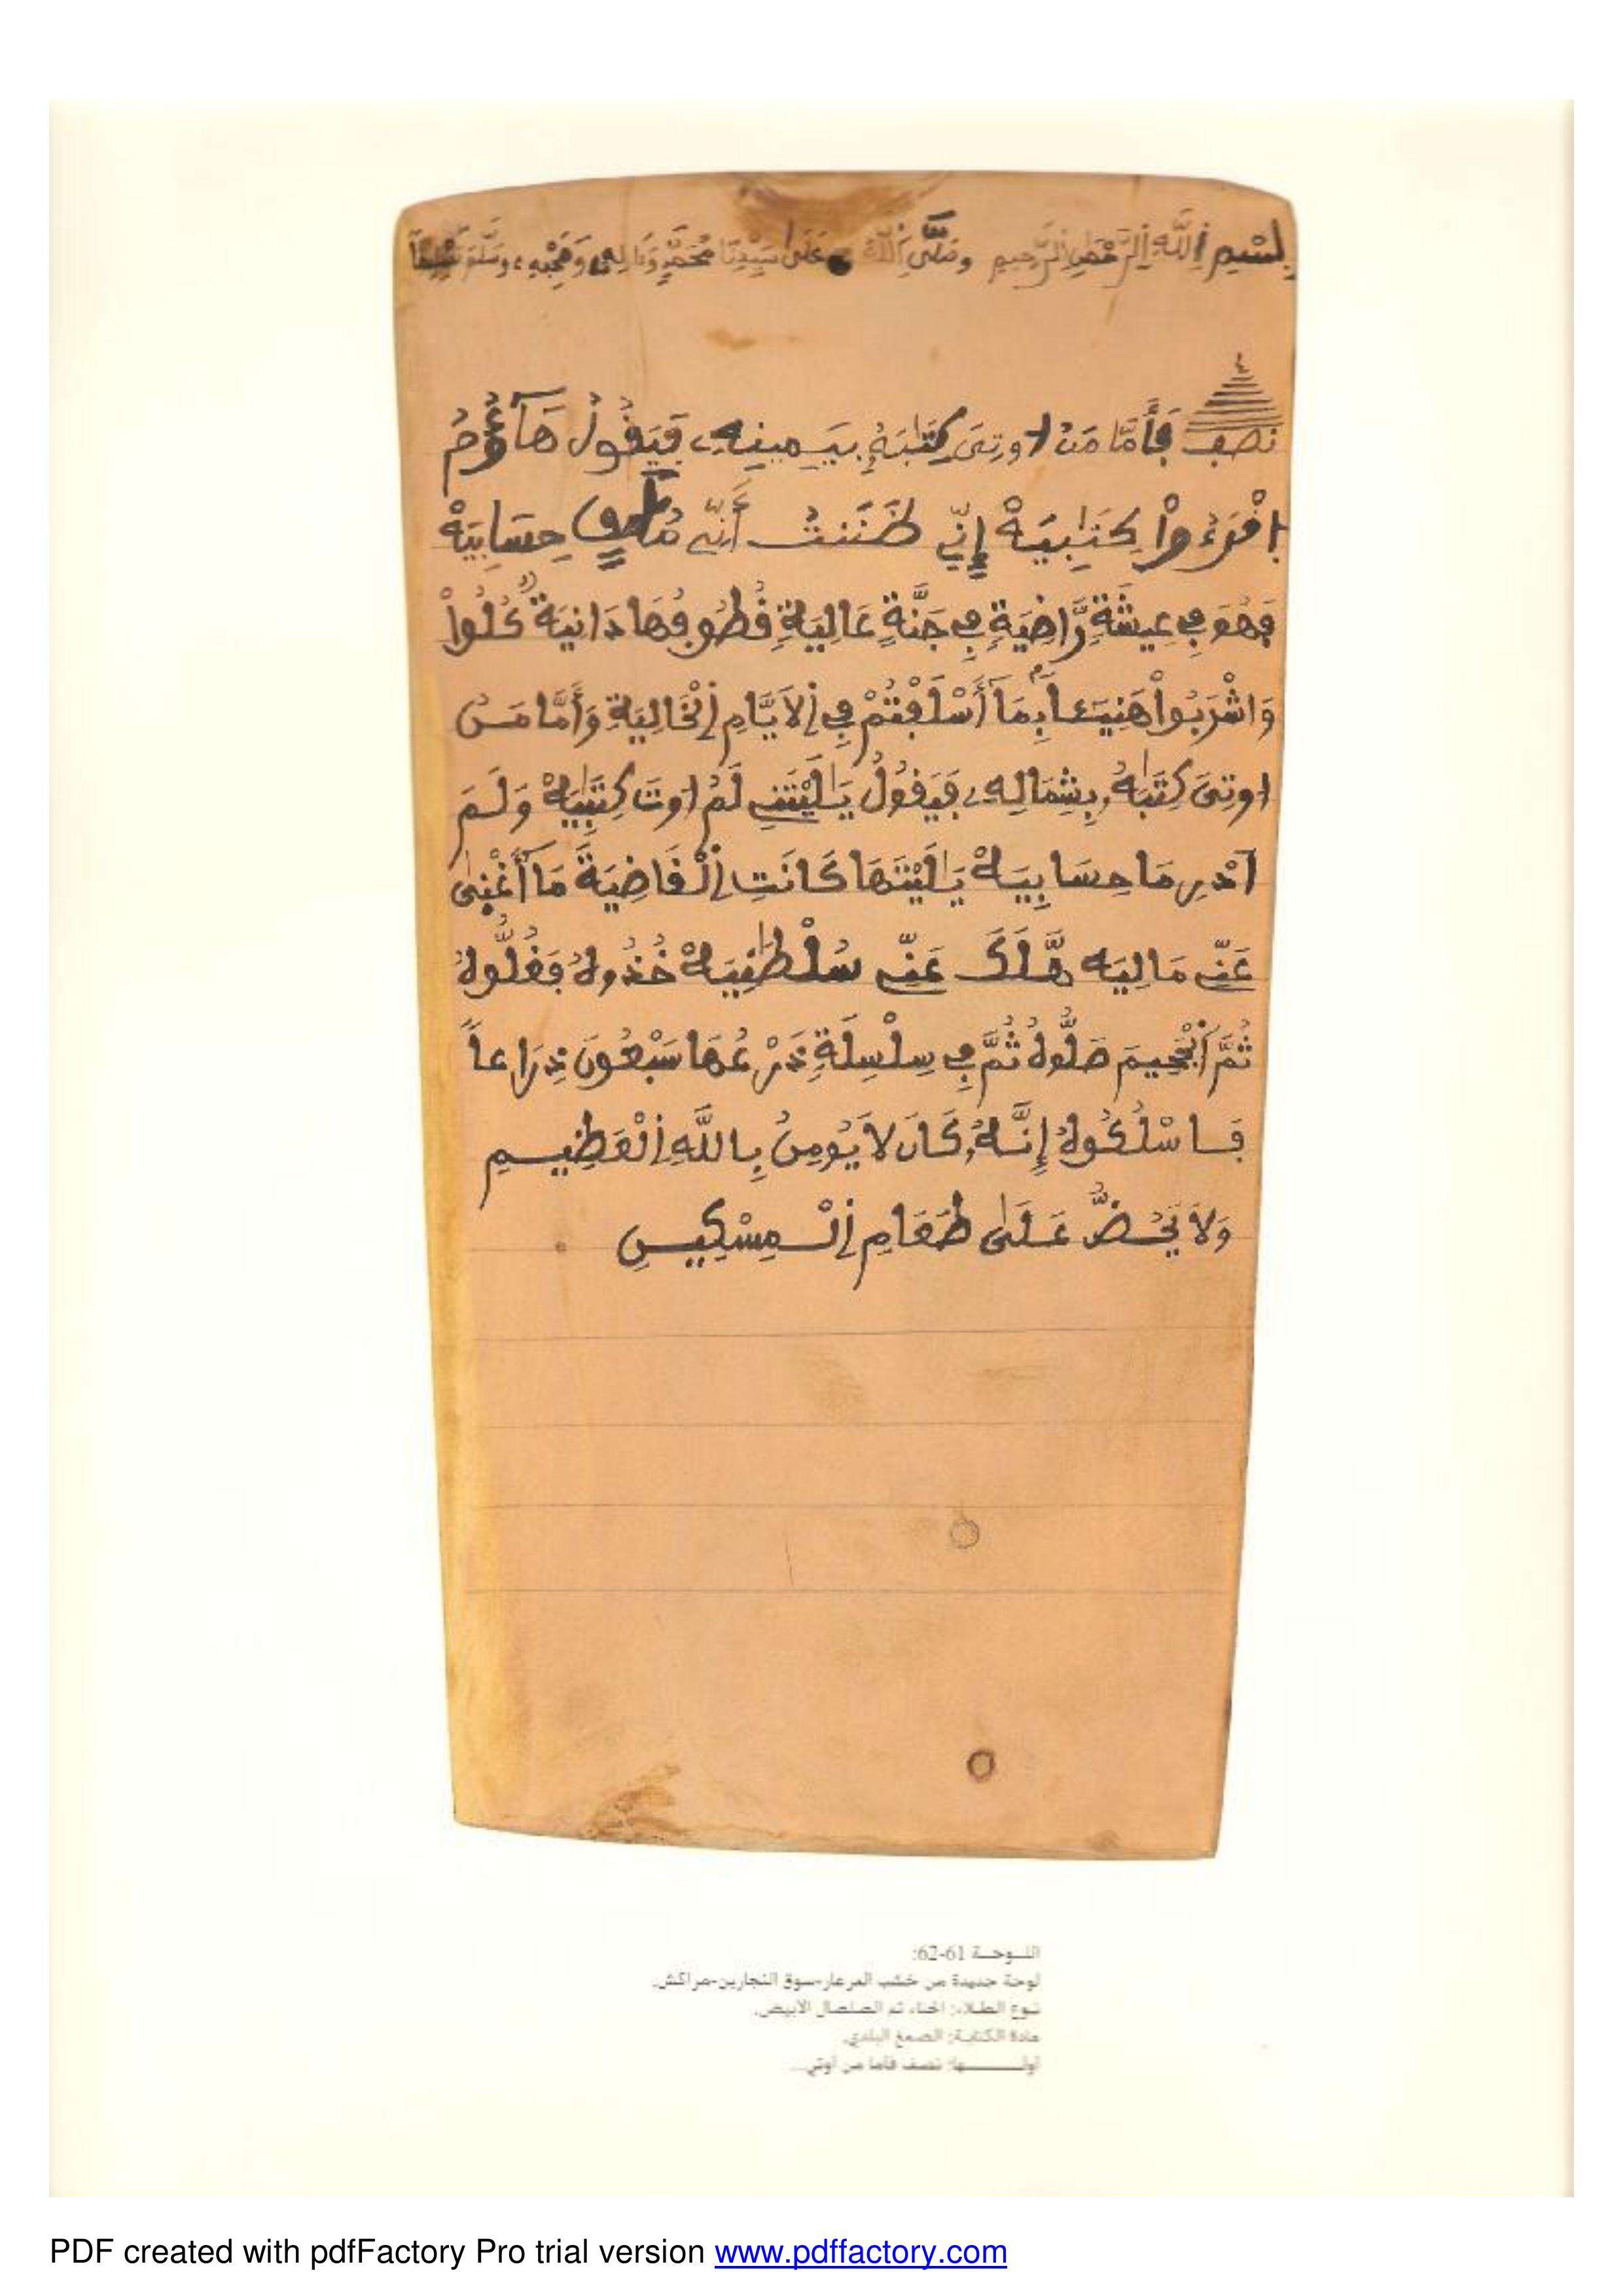 بِسْمِ اِللَّهِ اِلرَّحْمَٰنِ اِلرَّحِيمِ وَصَلَّى اَللَّهُ عَلَىٰ سَيِّدِنَا مُحَمَّدٍ وَءَالِهِ وَصَحْبِهِ وَسَلَّمَ تَسْلِيماً
نصڢ ڢَأَمَّا مَنُ اوتِىَ كِتَٰبَهُۥ بِيَمِينِهِۦ ڢَيَفُولُ هَآؤُمُ
اُفْرَءُواْ كِتَٰبِيَهْ إِنِّے ظَنَنتُ أَنِّے مُلَٰقٍ حِسَابِيَهْ
ڢَهُوَ ڢِے عِيشَةٍ رَّاضِيَةٍ ڢِے جَنَّةٍ عَالِيَةٍ فُطُوڢُهَا دَانِيَةٌ كُلُواْ
وَاشْرَبُواْ هَنِيٓـَٔاَۢ بِمَآ أَسْلَڢْتُمْ ڢِے اِلَايَّامِ اِلْخَالِيَةِ وَأَمَّا مَنُ
اوتِىَ كِتَٰبَهُۥ بِشِمَالِهِۦ ڢَيَفُولُ يَٰلَيْتَنِے لَمُ اوتَ كِتَٰبِيَهْ وَلَمَ
اَدْرِ مَا حِسَابِيَهْ يَٰلَيْتَهَا كَانَتِ اِلْفَاضِيَةَ مَآ أَغْنٜىٰ
عَنِّے مَالِيَه هَّلَكَ عَنِّے سُلْطَٰنِيَهْ خُذُوهُ ڢَغُلُّوهُ
ثُمَّ اَلْجَحِيمَ صَلُّوهُ ثُمَّ ڢِے سِلْسِلَةٍ ذَرْعُهَا سَبْعُونَ ذِرَاعاً
ڢَاسْلُكُوهُ إِنَّهُۥ كَانَ لَا يُومِنُ بِاللَّهِ اِلْعَظِيمِ
وَلَا يَحُضُّ عَلَىٰ طَعَامِ اِلْمِسْكِينِ
اللـوحـة 61-62:
لوحة جديدة من خشب العرعار-سوق النجارين-مراكش.
نـوع الطـلاء: الحناء ثم الصلصال الأبيض.
مادة الكتابـة: الصمغ البلدي.
أولـــــها: نصف فأما من أوتي...
PDF created with pdfFactory Pro trial version www.pdffactory.com